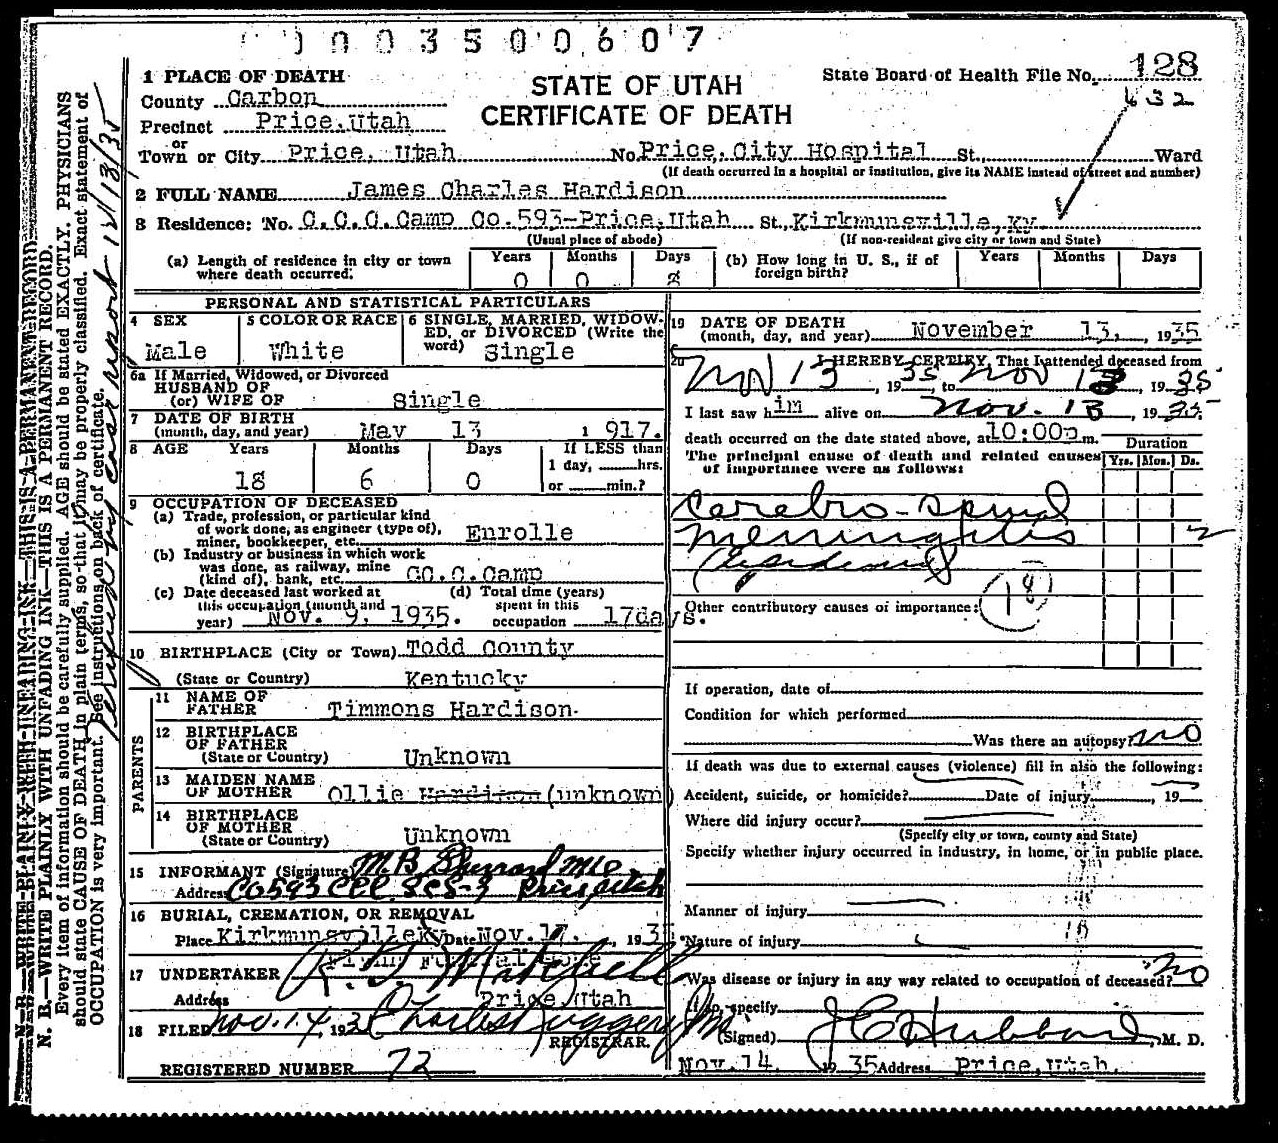 0003500607
STATE OF UTAH
CERTIFICATE OF DEATH
State Board of Health File No. 128
632
1 PLACE OF DEATH
County Carbon
Precinct Price, Utah
or
Town or City Price, Utah No. Price, City Hospital St., Ward
(If death occurred in a hospital or institution, give its NAME instead of street and number)
2 FULL NAME James Charles Hardison
3 Residence: No. C.C.C.Camp Co.593-Price,Utah St., Kirkmunsville,Ky
(Usual place of abode) (If non-resident give city or town and State)
(a) Length of residence in city or town where death occurred: Years 0 Months 0 Days 8
(b) How long in U. S., if of foreign birth? Years Months Days
PERSONAL AND STATISTICAL PARTICULARS
4 SEX Male
5 COLOR OR RACE White
6 SINGLE, MARRIED, WIDOWED, or DIVORCED (Write the word) Single
6a If Married, Widowed, or Divorced
HUSBAND OF
(or) WIFE OF Single
7 DATE OF BIRTH
(month, day, and year) May 13 1917.
8 AGE Years 18 Months 6 Days 0
If LESS than
1 day, hrs.
or min.?
9 OCCUPATION OF DECEASED
(a) Trade, profession, or particular kind
of work done, as engineer (type of),
miner, bookkeeper, etc. Enrolle
(b) Industry or business in which work
was done, as railway, mine
(kind of), bank, etc. CC.C.Camp
(c) Date deceased last worked at
this occupation (month and
year) Nov. 9, 1935.
(d) Total time (years)
spent in this
occupation 17days.
10 BIRTHPLACE (City or Town) Todd County
(State or Country) Kentucky
PARENTS
11 NAME OF
FATHER Timmons Hardison
12 BIRTHPLACE
OF FATHER
(State or Country) Unknown
13 MAIDEN NAME
OF MOTHER Ollie Hardison (unknown)
14 BIRTHPLACE
OF MOTHER
(State or Country) Unknown
15 INFORMANT (Signature) M.B.
Address Co 593 CCC SCS-3 Price, Utah
16 BURIAL, CREMATION, OR REMOVAL
Place Kirkmunsville Ky Date Nov. 17. 193
17 UNDERTAKER R. J. Mitchell
Address Price, Utah
18 FILED Nov. 14, 193
REGISTRAR.
REGISTERED NUMBER 72
19 DATE OF DEATH
(month, day, and year) November 13, 1935
20 I HEREBY CERTIFY, That I attended deceased from
Nov 13, 1935 to Nov 13, 1935
I last saw him alive on Nov. 13, 1935
death occurred on the date stated above, at 10:00p.m.
The principal cause of death and related causes
of importance were as follows:
Duration
Yrs. Mos. Ds.
Cerebro-spinal
Meningitis 2
(Epidemic)
18
Other contributory causes of importance:
If operation, date of
Condition for which performed
Was there an autopsy? no
If death was due to external causes (violence) fill in also the following:
Accident, suicide, or homicide? Date of injury , 19
Where did injury occur?
(Specify city or town, county and State)
Specify whether injury occurred in industry, in home, or in public place.
Manner of injury
Nature of injury
Was disease or injury in any way related to occupation of deceased? no
If so, specify
(Signed) J C Hubbard, M. D.
Nov. 14. 1935 Address Price, Utah.
N. B.—WRITE PLAINLY WITH UNFADING INK—THIS IS A PERMANENT RECORD.
Every item of information should be carefully supplied. AGE should be stated EXACTLY. PHYSICIANS
should state CAUSE OF DEATH in plain terms, so that it may be properly classified. Exact statement of
OCCUPATION is very important. See instructions on back of certificate.
12/13/35